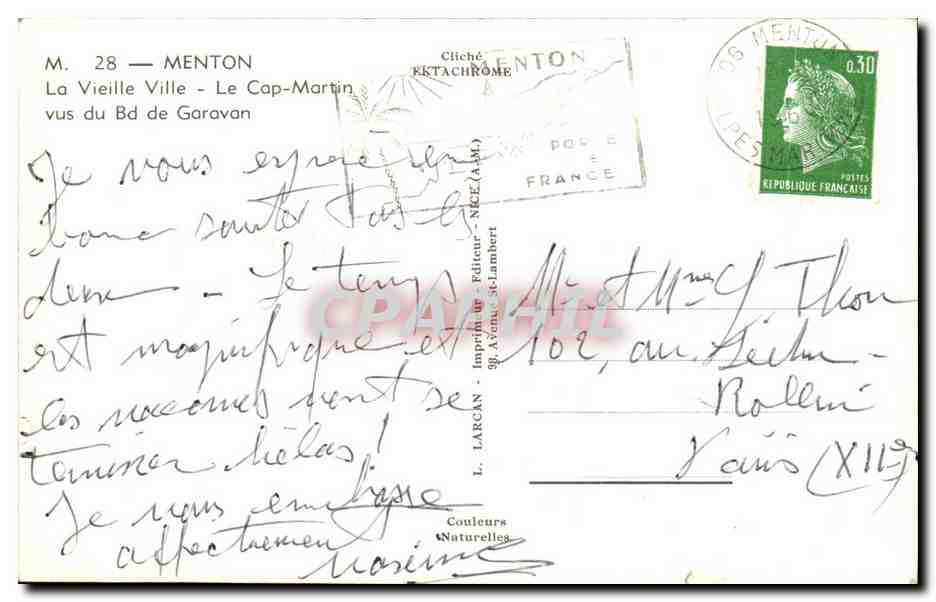 M. 28 — MENTON
La Vieille Ville - Le Cap-Martin
vus du Bd de Garavan
Cliché
EKTACHROME
MENTON
FRANCE
06 MENTON
ALPES MAR
0,30
POSTES
REPUBLIQUE FRANÇAISE
Je vous espère en
bonne santé tous les
deux - Le temps
est magnifique et
les vacances vont se
terminer hélas!
Je vous embrasse
affectueusement
L. LARCAN - Imprimeur - Editeur - NICE (A.-M.)
98, Avenue St-Lambert
Couleurs
Naturelles
Mr et Mme Thon
102, av. Ledru-
Rollin
Paris (XIIe)
CPAPHIL